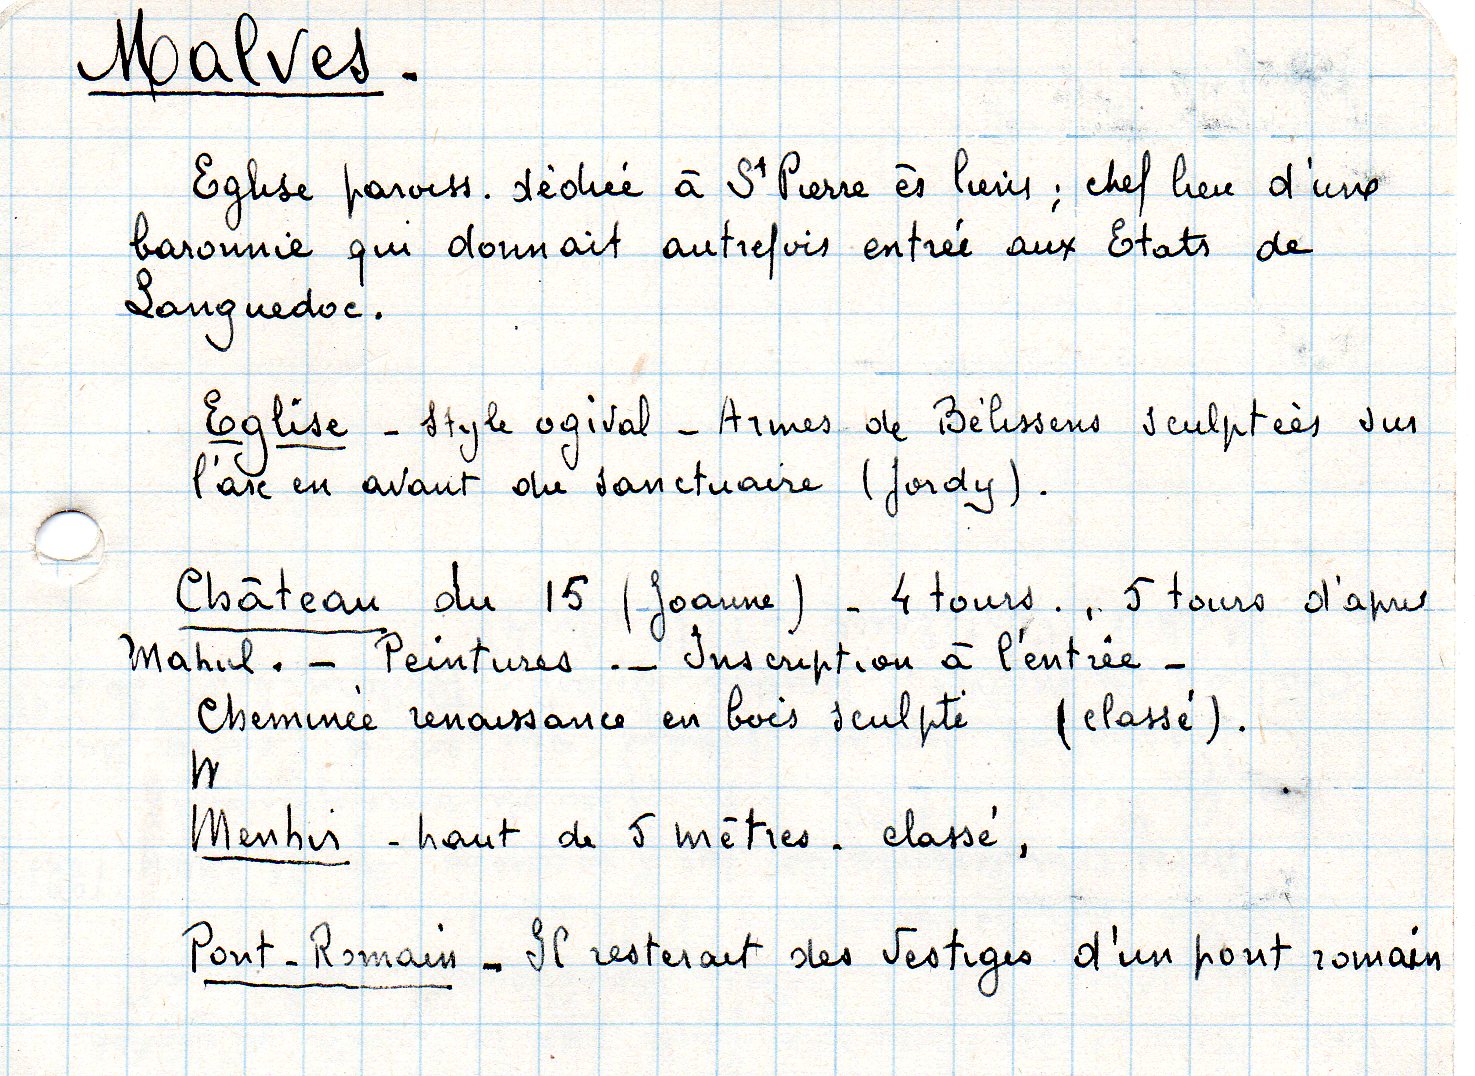 Malves.
Eglise paroiss. dédiée à St Pierre ès liens ; chef lieu d'une
baronnie qui donnait autrefois entrée aux Etats de
Languedoc.
Eglise - style ogival - Armes de Bélissens sculptées sur
l'arc en avant du sanctuaire (Jordy).
Château du 15 (Joanne) - 4 tours. , 5 tours d'après
Mahul. - Peintures. - Inscription à l'entrée -
Cheminée renaissance en bois sculpté (classé).
Menhir - haut de 5 mètres. classé,
Pont-Romain - Il resterait des vestiges d'un pont romain